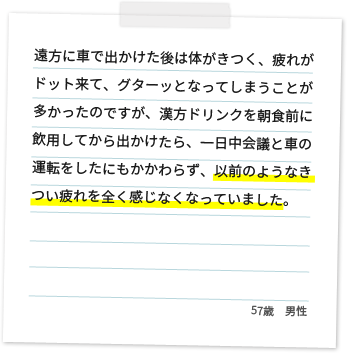 遠方に車で出かけた後は体がきつく、疲れが
ドット来て、グターッとなってしまうことが
多かったのですが、漢方ドリンクを朝食前に
飲用してから出かけたら、一日中会議と車の
運転をしたにもかかわらず、以前のようなき
つい疲れを全く感じなくなっていました。
57歳　男性